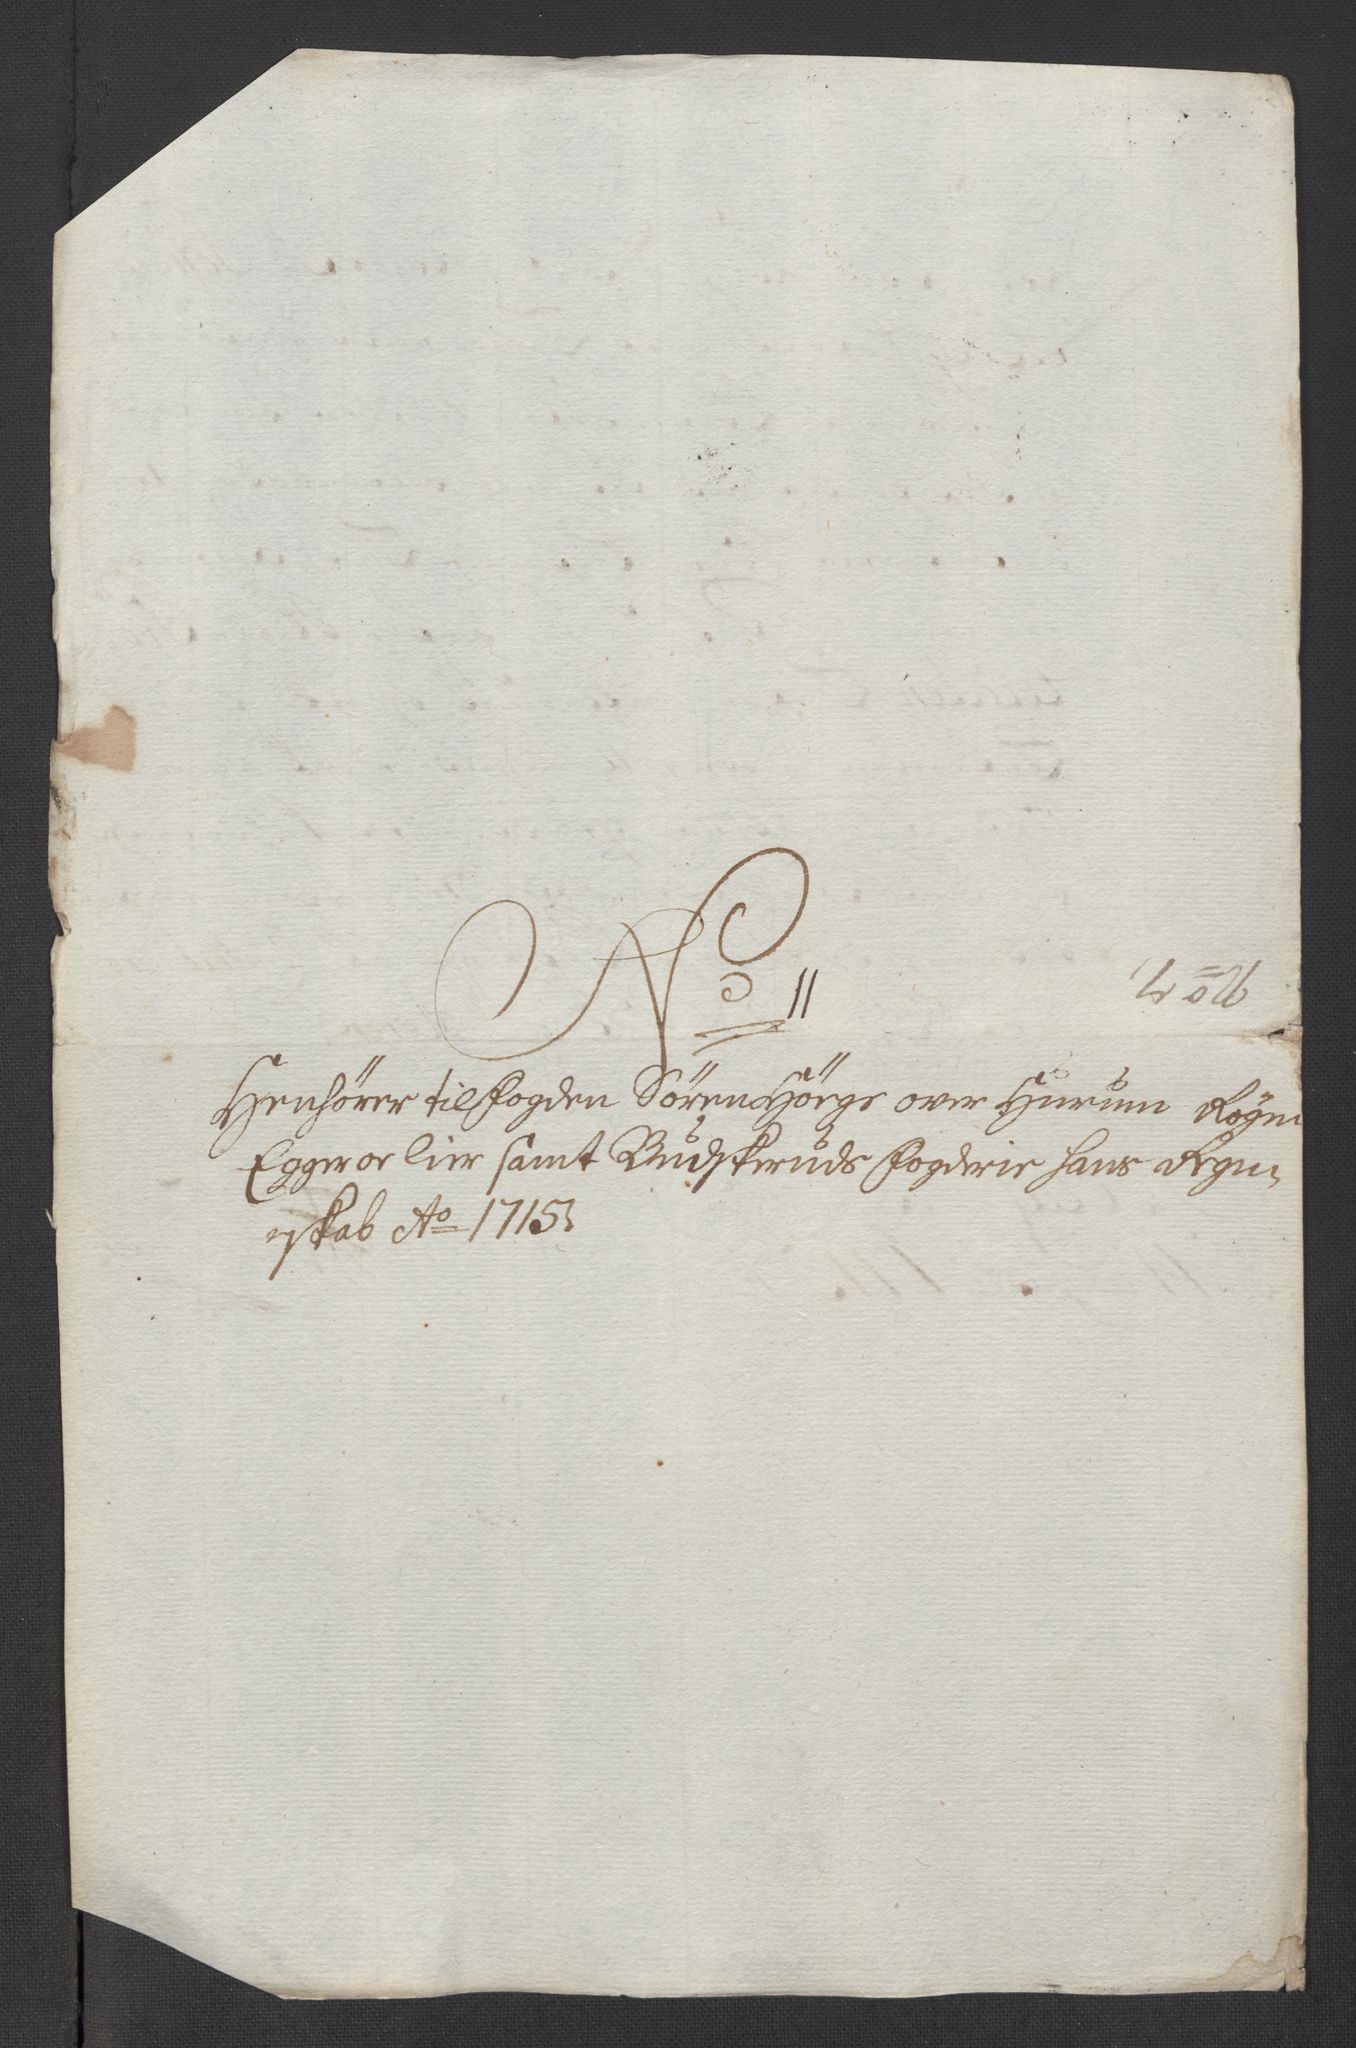 No 11
No 7.
Henhörer til Fogden Sören Hörge over Hurum Røgen
Egger oc Lier samt Budskeruds Fogderie hans Regen,,
skab Ao 1715